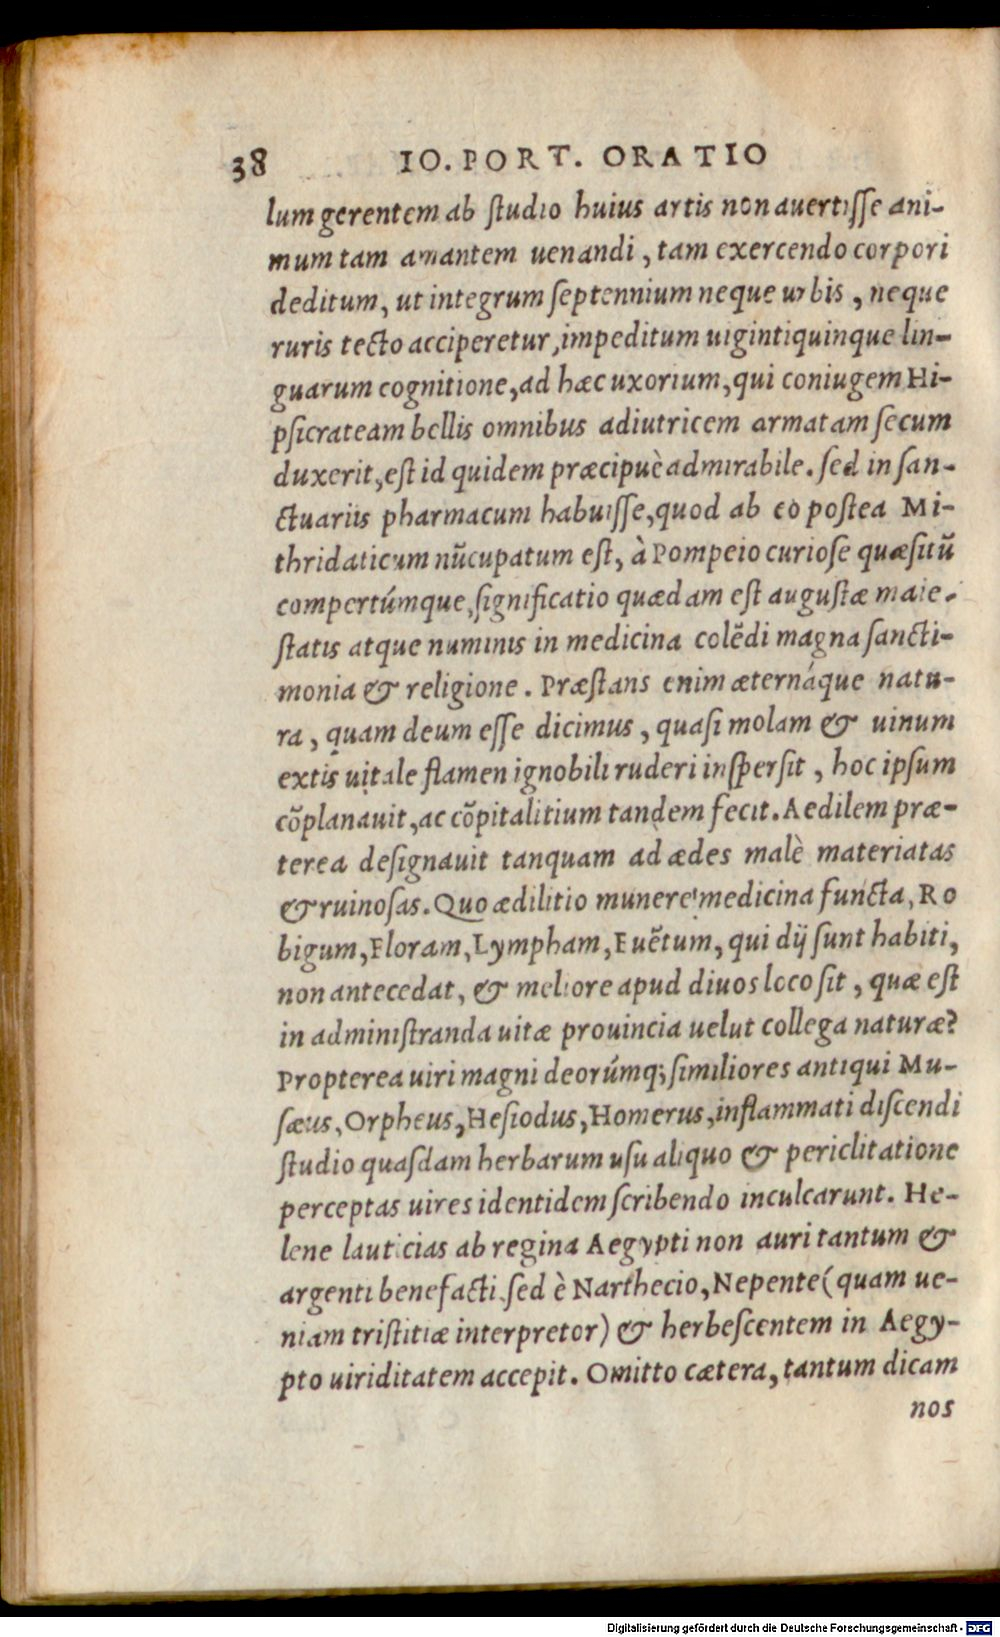 38 IO. PORT. ORATIO
lum gerentem ab ſtudio huius artis non auertiſſe ani-
mum tam amantem uenandi, tam exercendo corpori
deditum, ut integrum ſeptennium neque urbis, neque
ruris tecto acciperetur, impeditum uigintiquinque lin-
guarum cognitione, ad hæc uxorium, qui coniugem Hi-
pſicrateam bellis omnibus adiutricem armatam ſecum
duxerit, eſt id quidem præcipuè admirabile. ſed in ſan-
ctuariis pharmacum habuiſſe, quod ab eo poſtea Mi-
thridaticum nũcupatum eſt, à Pompeio curioſe quæſitũ
compertúmque, ſignificatio quædam eſt auguſtæ maie-
ſtatis atque numinis in medicina colẽdi magna ſancti-
monia & religione. Præſtans enim æternáque natu-
ra, quam deum eſſe dicimus, quaſi molam & uinum
extis uitale flamen ignobili ruderi inſperſit, hoc ipſum
cõplanauit, ac cõpitalitium tandem fecit. Aedilem præ-
terea deſignauit tanquam ad ædes malè materiatas
& ruinoſas. Quo ædilitio munere medicina functa, Ro
bigum, Floram, Lympham, Euẽtum, qui dij ſunt habiti,
non antecedat, & meliore apud diuos loco ſit, quæ eſt
in adminiſtranda uitæ prouincia uelut collega naturæ?
Propterea uiri magni deorúmq; ſimiliores antiqui Mu-
ſæus, Orpheus, Heſiodus, Homerus, inflammati diſcendi
ſtudio quaſdam herbarum uſu aliquo & periclitatione
perceptas uires identidem ſcribendo inculcarunt. He-
lene lauticias ab regina Aegypti non auri tantum &
argenti benefacti, ſed è Narthecio, Nepente (quam ue-
niam triſtitiæ interpretor) & herbeſcentem in Aegy-
pto uiriditatem accepit. Omitto cætera, tantum dicam
nos
Digitalisierung gefördert durch die Deutsche Forschungsgemeinschaft - DFG